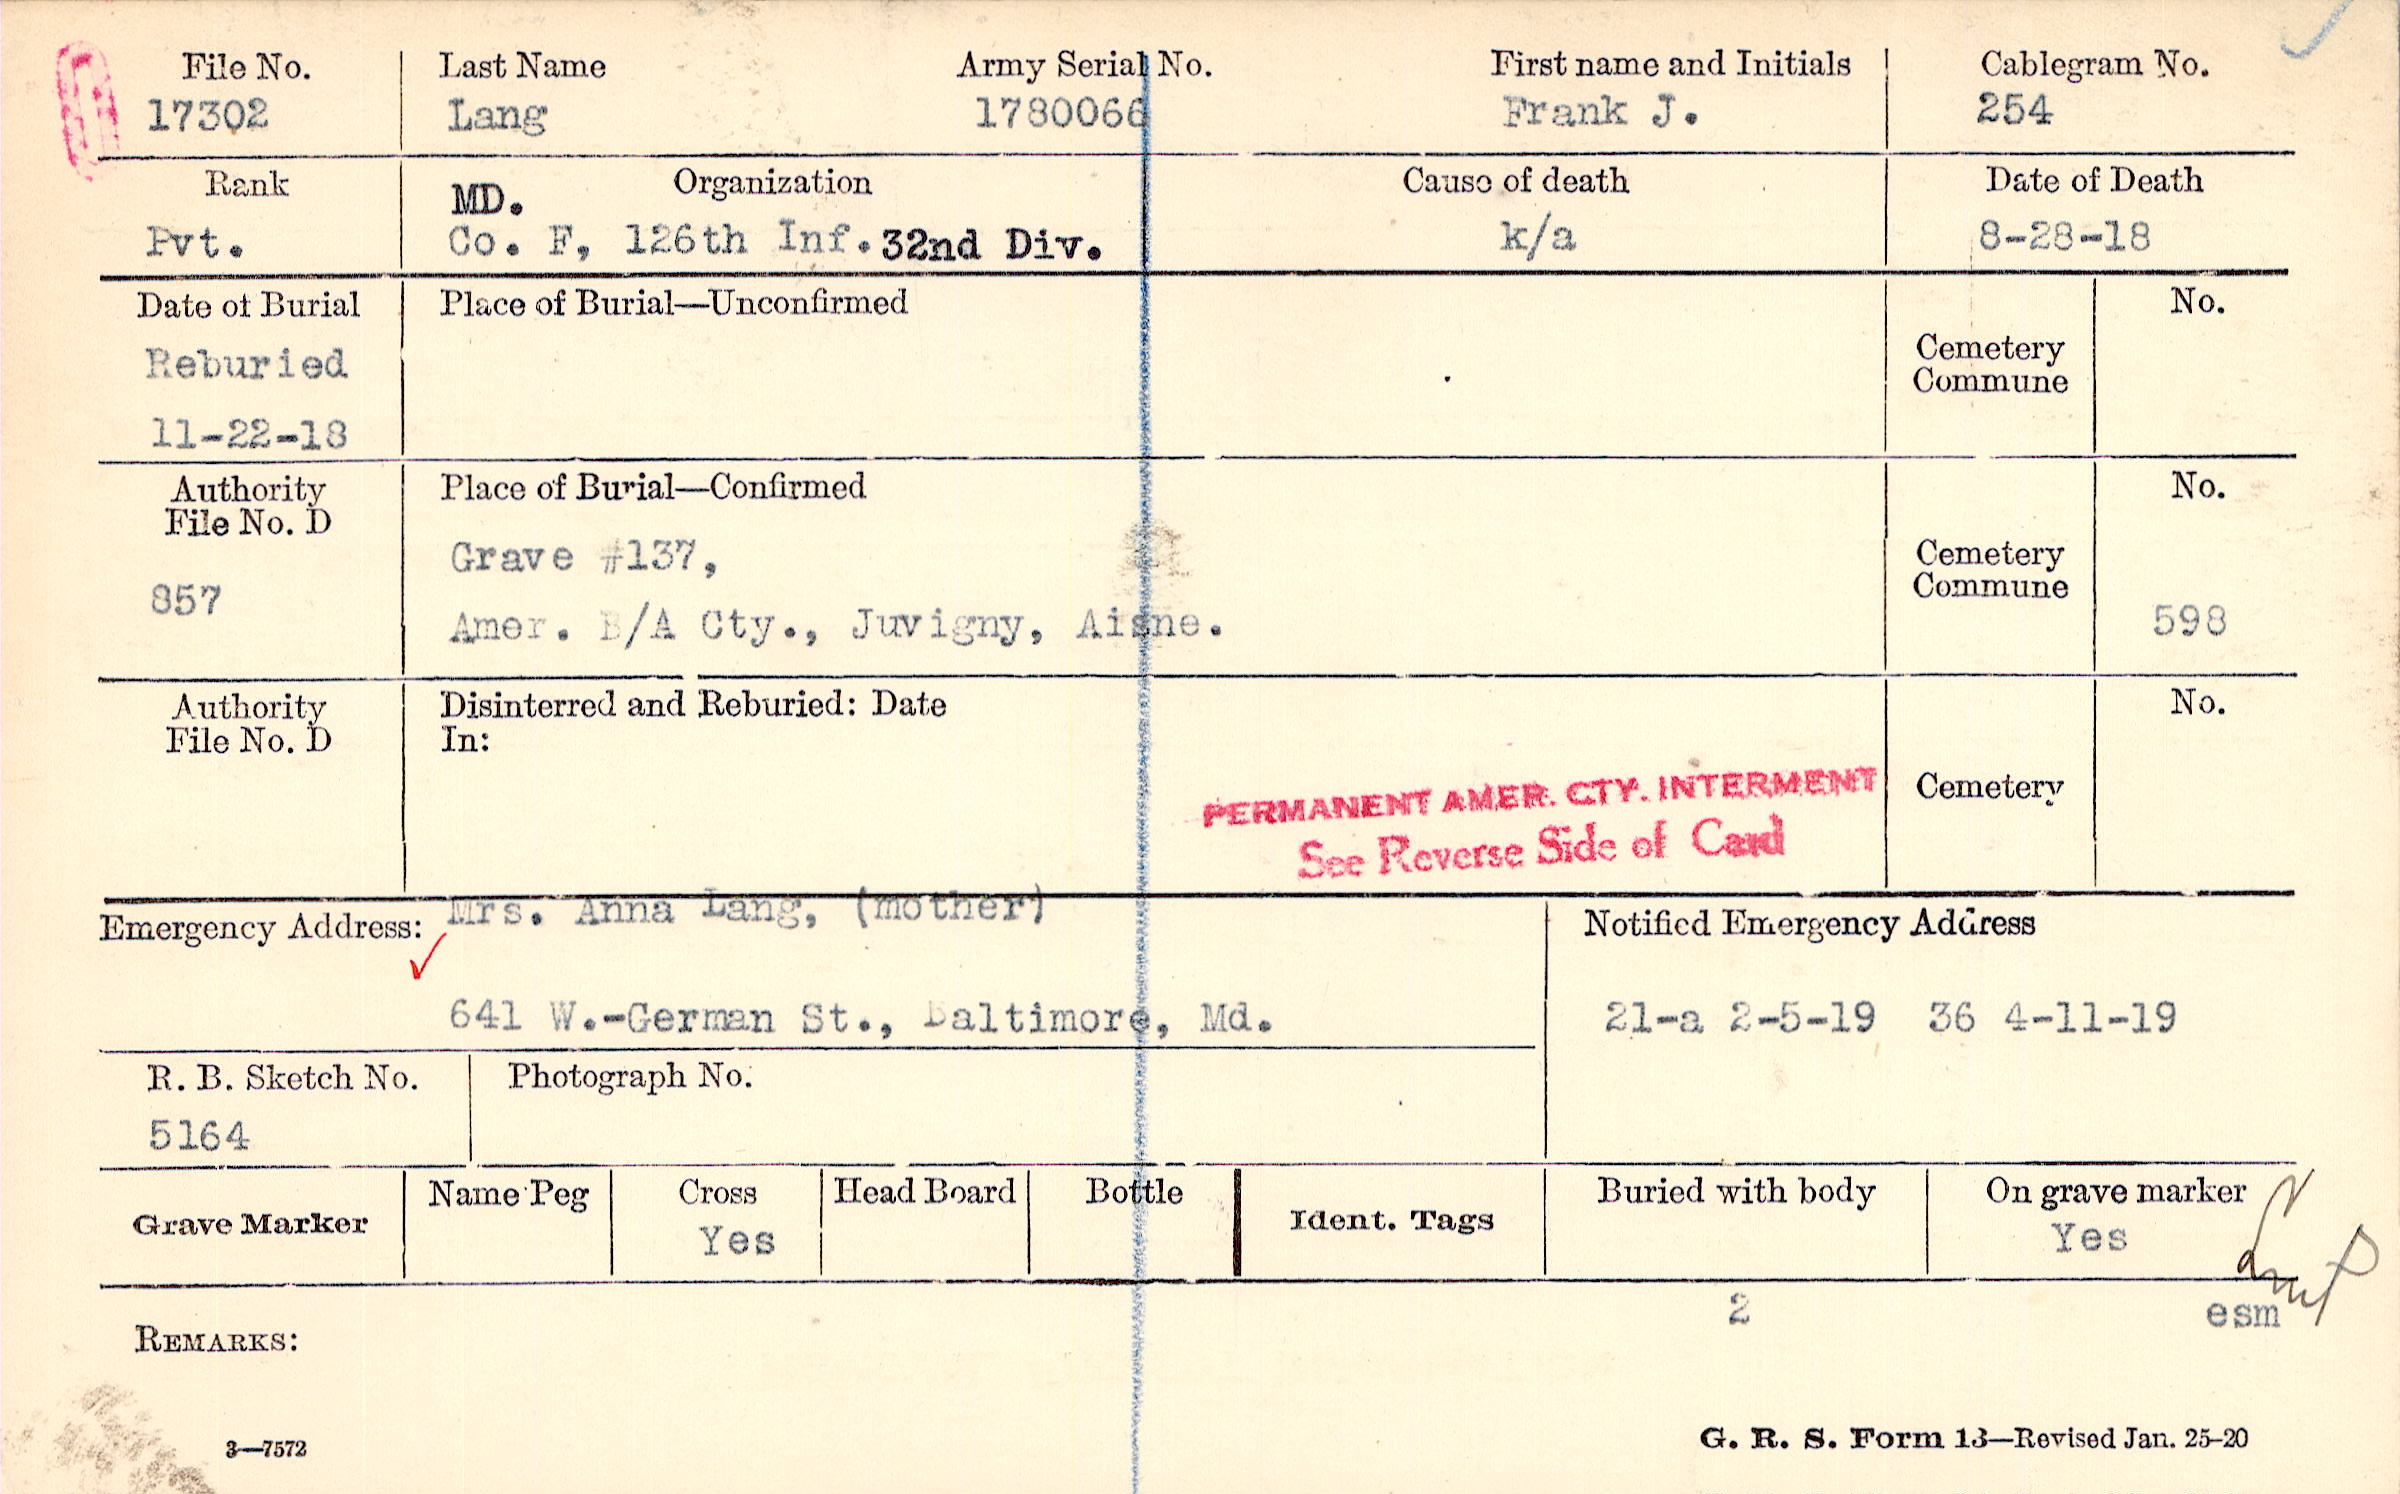 File No. Last Name Army Serial No. First name and Initials Cablegram No.
17302 Lang 1780066 Frank J. 254
Rank Organization Cause of death Date of Death
MD.
Pvt. Co. F, 126th Inf. 32nd Div. k/a 8-28-18
Date of Burial Place of Burial—Unconfirmed No.
Reburied Cemetery
Commune
11-22-18
Authority Place of Burial—Confirmed No.
File No. D
Grave #137, Cemetery
857 Commune
Amer. B/A Cty., Juvigny, Aisne. 598
Authority Disinterred and Reburied: Date No.
File No. D In:
PERMANENT AMER. CTY. INTERMENT Cemetery
See Reverse Side of Card
Emergency Address: Mrs. Anna Lang, (mother) Notified Emergency Address
641 W.-German St., Baltimore, Md. 21-a 2-5-19 36 4-11-19
R. B. Sketch No. Photograph No.
5164
Grave Marker Name Peg Cross Head Board Bottle Ident. Tags Buried with body On grave marker
Yes Yes
2 esm
REMARKS:
3—7572 G. R. S. Form 13—Revised Jan. 25-20